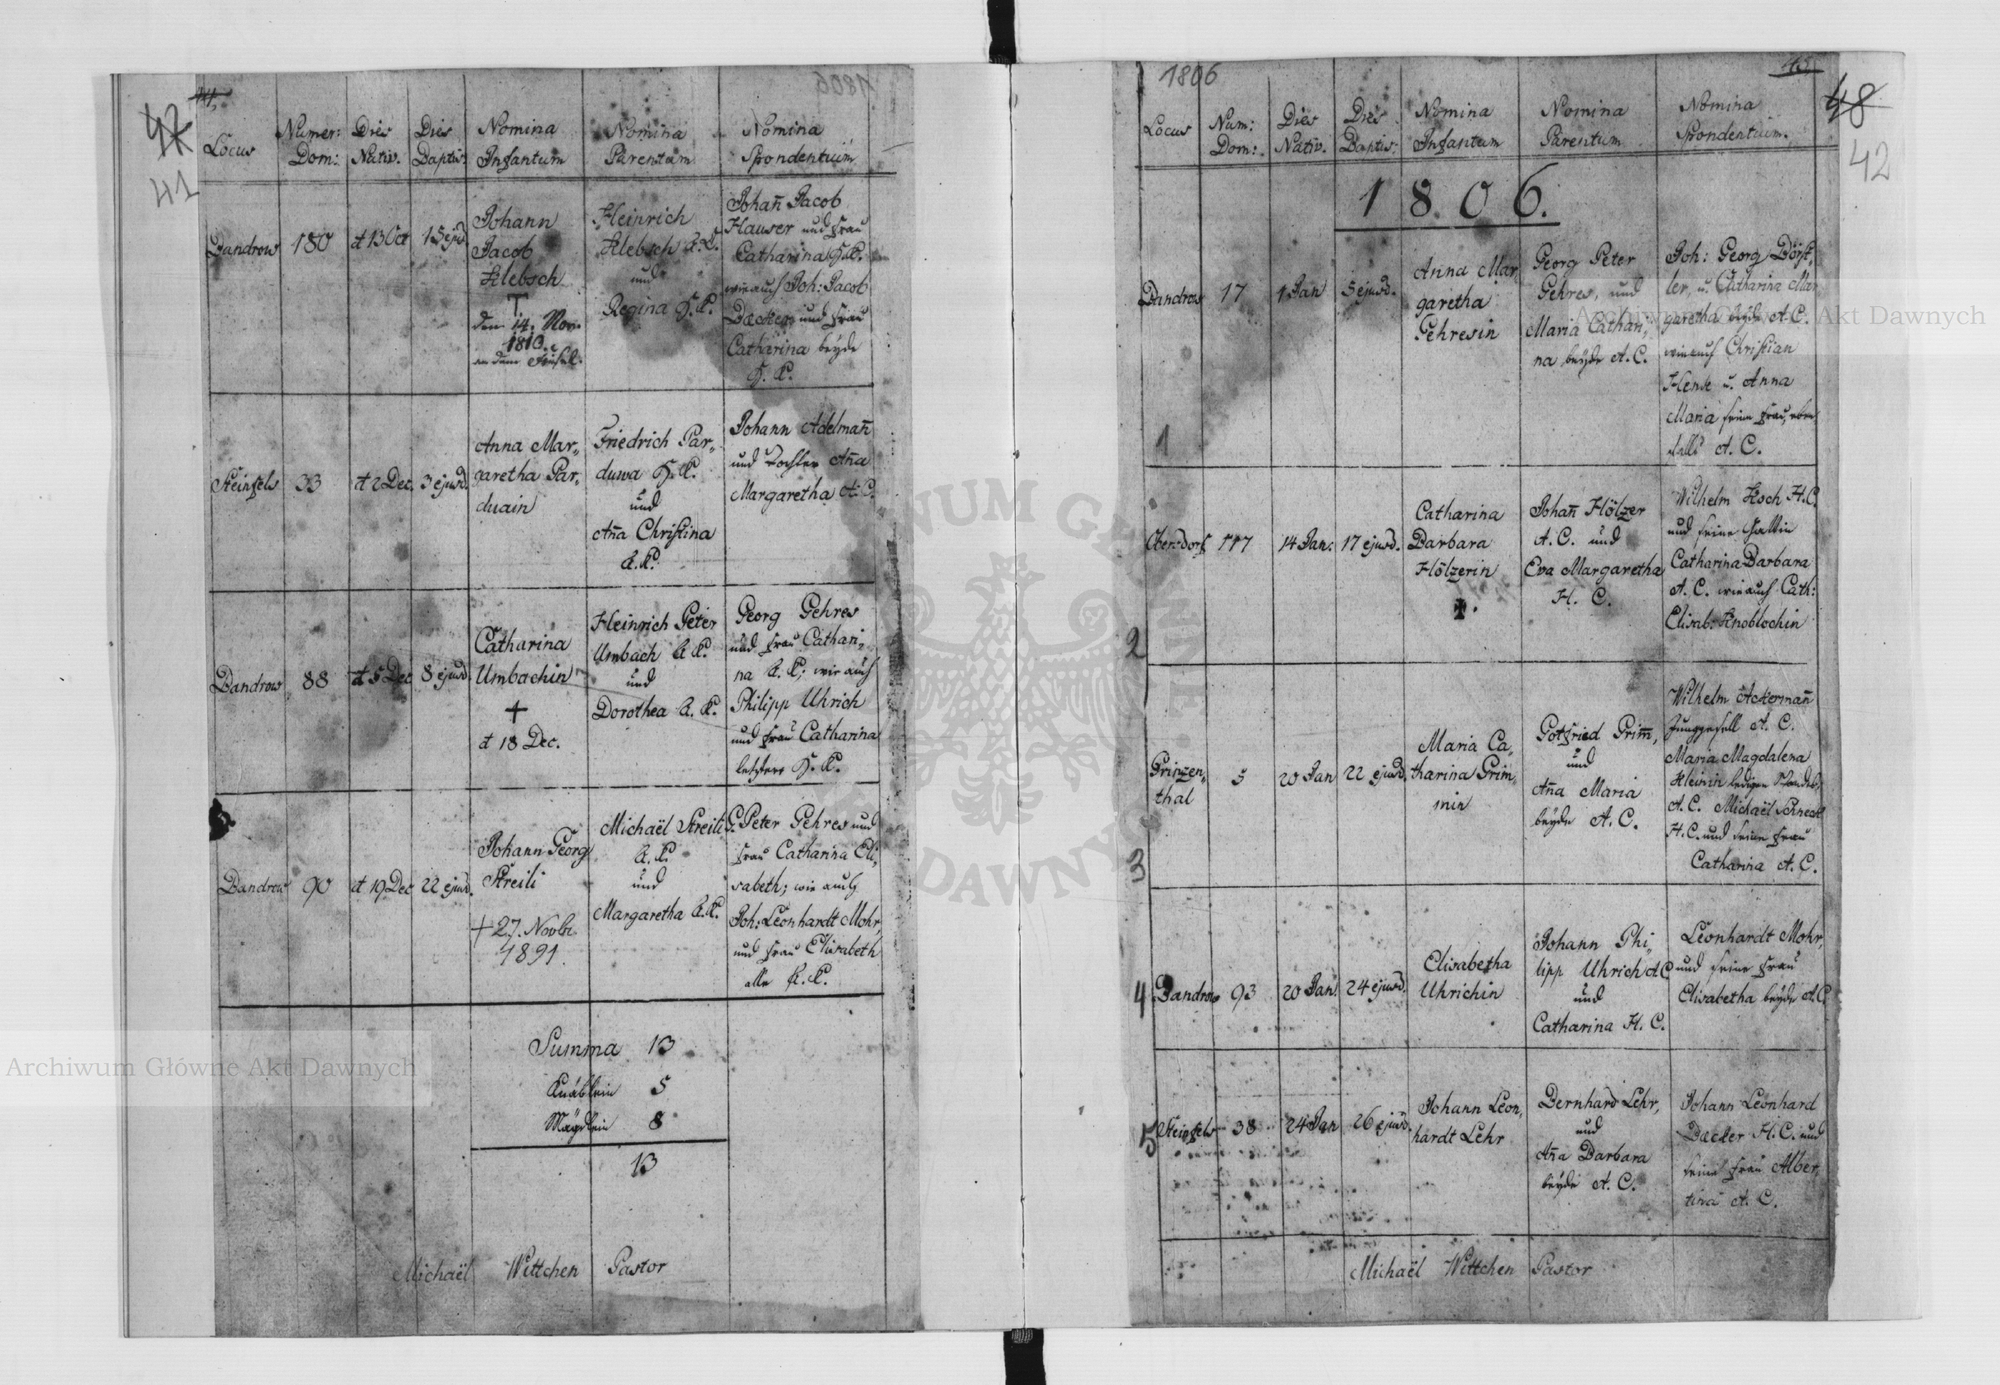 44.
41
1806
Locus
Numer: Dom:
Dies Nativ.
Dies Baptis.
Nomina Infantum
Nomina Parentum
Nomina Spondentium
Bandrow
180
d 13 Oct
15 ejusd.
Johann
Jacob
Klebsch
†
den 14. Nov.
1813.
Heinrich
Klebsch A.K.
und
Regina H.K.
Johan̄ Jacob
Hauser und Frau
Catharina H.K.
wie auch Joh: Jacob
Däcker und Frau
Catharina beyde
H. K.
Steinfels
33
d 2 Dec.
3 ejusd.
Anna Mar-
garetha Par-
duain
Friedrich Par-
duwa H. K.
und
An̄a Christina
A.K.
Johann Adelman̄
und Tochter An̄a
Margaretha A.C.
Bandrow
88
d 5 Dec
8 ejusd.
Catharina
Umbachin
†
d 18 Dec.
Heinrich Peter
Umbach A K.
und
Dorothea A. K.
Georg Gehres
und Frau Cathari-
na A. K; wie auch
Philipp Uhrich
und Frau Catharina
letztere H. K.
Bandrow
90
d 19 Dec
22 ejusd.
Johann Georg
Streili
† 27. Novbr
1891.
Michaël Streili
A.K.
und
Margaretha A.K.
G. Peter Gehres und
Frau Catharina Eli-
sabeth; wie auch
Joh: Leonhardt Mohr,
und Frau Elisabeth
alle A. K.
Summa 13
Knäblein 5
Mägdlein 8
13
Michaël Wittchen Pastor
1806
45
48
42
Locus
Num: Dom:
Dies Nativ.
Dies Baptis:
Nomina Infantum
Nomina Parentum
Nomina Spondentium.
1806.
1
Bandrow
17
1 Jan
5 ejusd.
Anna Mar-
garetha
Gehresin
Georg Peter
Gehres, und
Maria Cathari-
na beyde A. C.
Joh: Georg Dörf-
ler, u. Catharina Mar-
garetha beyde A. C.
wie auch Christian
Henk u. Anna
Maria seine Frau, eben-
falls A. C.
2
Obersdorf
117
14 Jan:
17 ejusd.
Catharina
Barbara
Hölzerin
✝.
Johan̄ Hölzer
A. C. und
Eva Margaretha
H. C.
Wilhelm Koch H.C.
und seine Gattin
Catharina Barbara
A. C. wie auch Cath:
Elisab. Knoblochin
3
Prinzen-
thal
5
20 Jan
22 ejusd.
Maria Ca-
tharina Grim-
min
Gotfried Grim̄,
und
An̄a Maria
beyde A. C.
Wilhelm Ackerman̄
Junggesell A. C.
Maria Magdalena
Kleinin ledigen Standes,
A. C. Michaël Schneck
H. C. und seine Frau
Catharina A. C.
4
Bandrow
93
20 Jan
24 ejusd.
Elisabetha
Uhrichin
Johann Phi-
lipp Uhrich A C
und
Catharina H. C.
Leonhardt Mohr,
und seine Frau
Elisabetha beyde A. C.
5
Steinfels
38
24 Jan
26 ejusd.
Johann Leon-
hardt Lehr
Bernhard Lehr,
und
An̄a Barbara
beyde A. C.
Johann Leonhard
Däcker H. C. und
seine Frau Alber-
tina A. C.
Michaël Wittchen Pastor
Archiwum Główne Akt Dawnych
Archiwum Główne Akt Dawnych